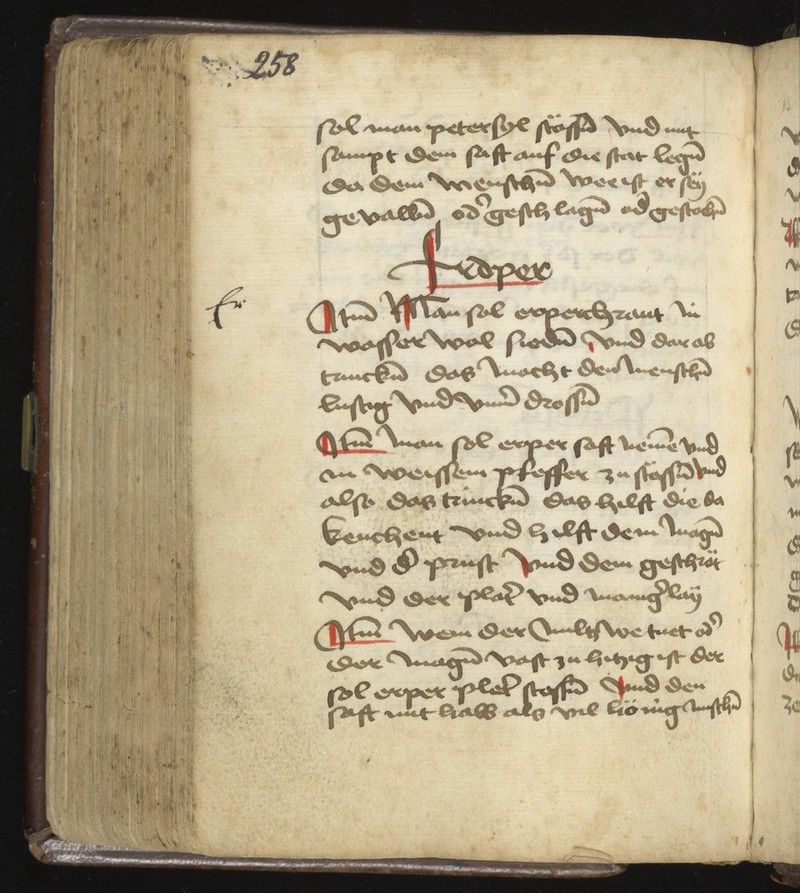 258
sol man petersyl stössñ vnd mit
sampt dem saft auf die stat legñ
da dem menschñ wee ist er seÿ
gevallñ od' geschlagñ od' gestochñ
Erdper
Er
Itm̄ Man sol erperchraut in
wasser wol siedñ vnd dar ab
trinckñ das macht den menschñ
lustig vnd vnu'drossñ
Itm̄ man sol erper saft nemē vnd
in weissem pfeffer zu stössñ vnd
also das trinckñ das hilft die da
keuchent vnd hilft dem magñ
vnd d' prust vnd dem geschröt
vnd der plat' vnd manig'laÿ
Itm̄ wem der miltz we tuet od'
der magñ vast zu hitzig ist der
sol erper plet' stossñ vnd den
saft mit halb als vil hönig mischñ